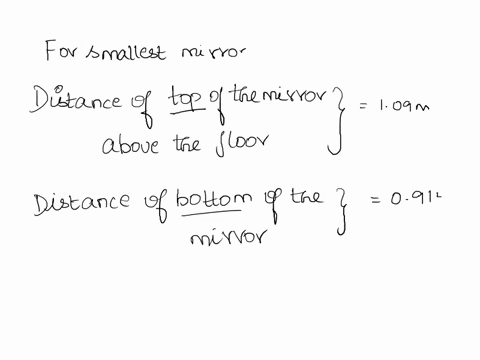 For smallest mirror
Distance of top of the mirror
above the floor } = 1.09m
Distance of bottom of the
mirror } = 0.91